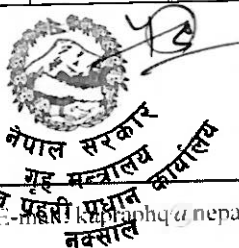 नेपाल सरकार
गृह मन्त्रालय
प्रहरी प्रधान कार्यालय
नक्साल
E-mail: kapraphq@nepa